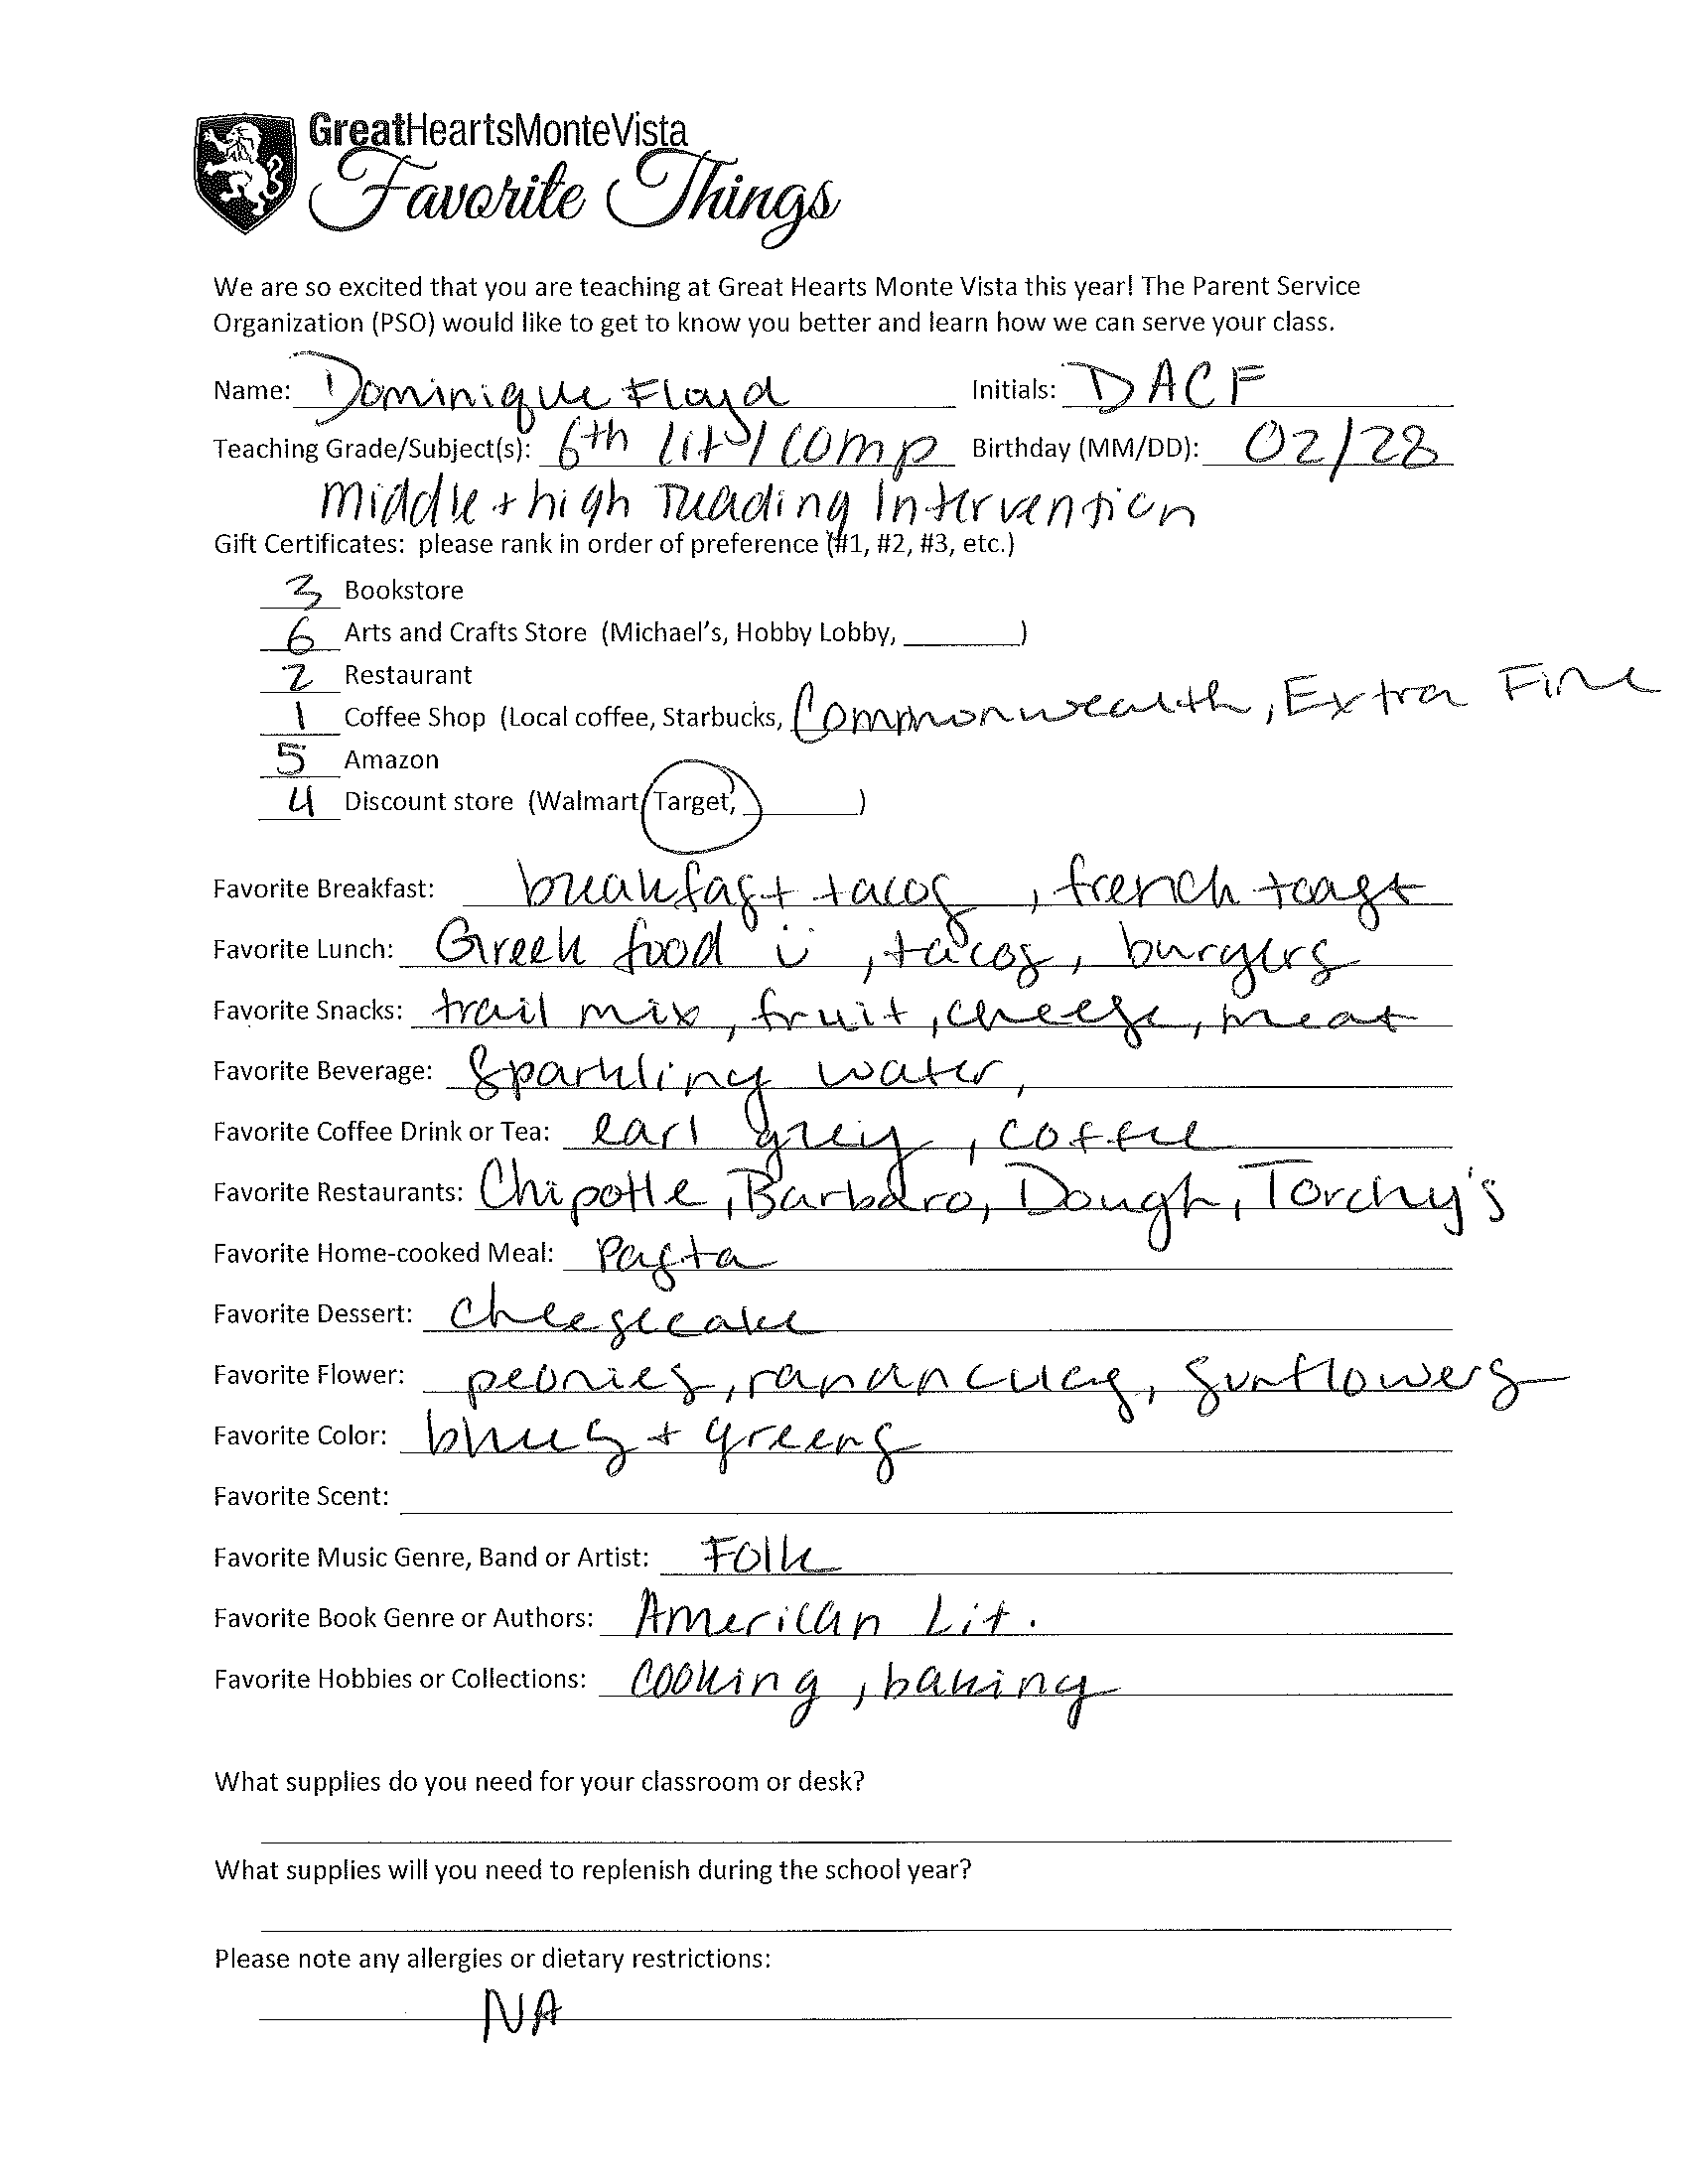 GreatHeartsMonteVista
Favorite Things
We are so excited that you are teaching at Great Hearts Monte Vista this year! The Parent Service
Organization (PSO) would like to get to know you better and learn how we can serve your class.
Name: Dominique Floyd Initials: DACF
Teaching Grade/Subject(s): 6th Lit/Comp Birthday (MM/DD): 02/28
middle + high Reading Intervention
Gift Certificates: please rank in order of preference (#1, #2, #3, etc.)
3 Bookstore
6 Arts and Crafts Store (Michael's, Hobby Lobby, ________)
2 Restaurant
1 Coffee Shop (Local coffee, Starbucks, Commonwealth, Extra Fine
5 Amazon
4 Discount store (Walmart, Target, ________)
Favorite Breakfast: breakfast tacos, french toast
Favorite Lunch: Greek food ü, tacos, burgers
Favorite Snacks: trail mix, fruit, cheese, meat
Favorite Beverage: Sparkling water,
Favorite Coffee Drink or Tea: earl grey, coffee
Favorite Restaurants: Chipotle, Barbaro, Dough, Torchy's
Favorite Home-cooked Meal: Pasta
Favorite Dessert: cheesecake
Favorite Flower: peonies, rananculas, sunflowers
Favorite Color: blues + greens
Favorite Scent:
Favorite Music Genre, Band or Artist: Folk
Favorite Book Genre or Authors: American Lit.
Favorite Hobbies or Collections: cooking, baking
What supplies do you need for your classroom or desk?
What supplies will you need to replenish during the school year?
Please note any allergies or dietary restrictions:
NA